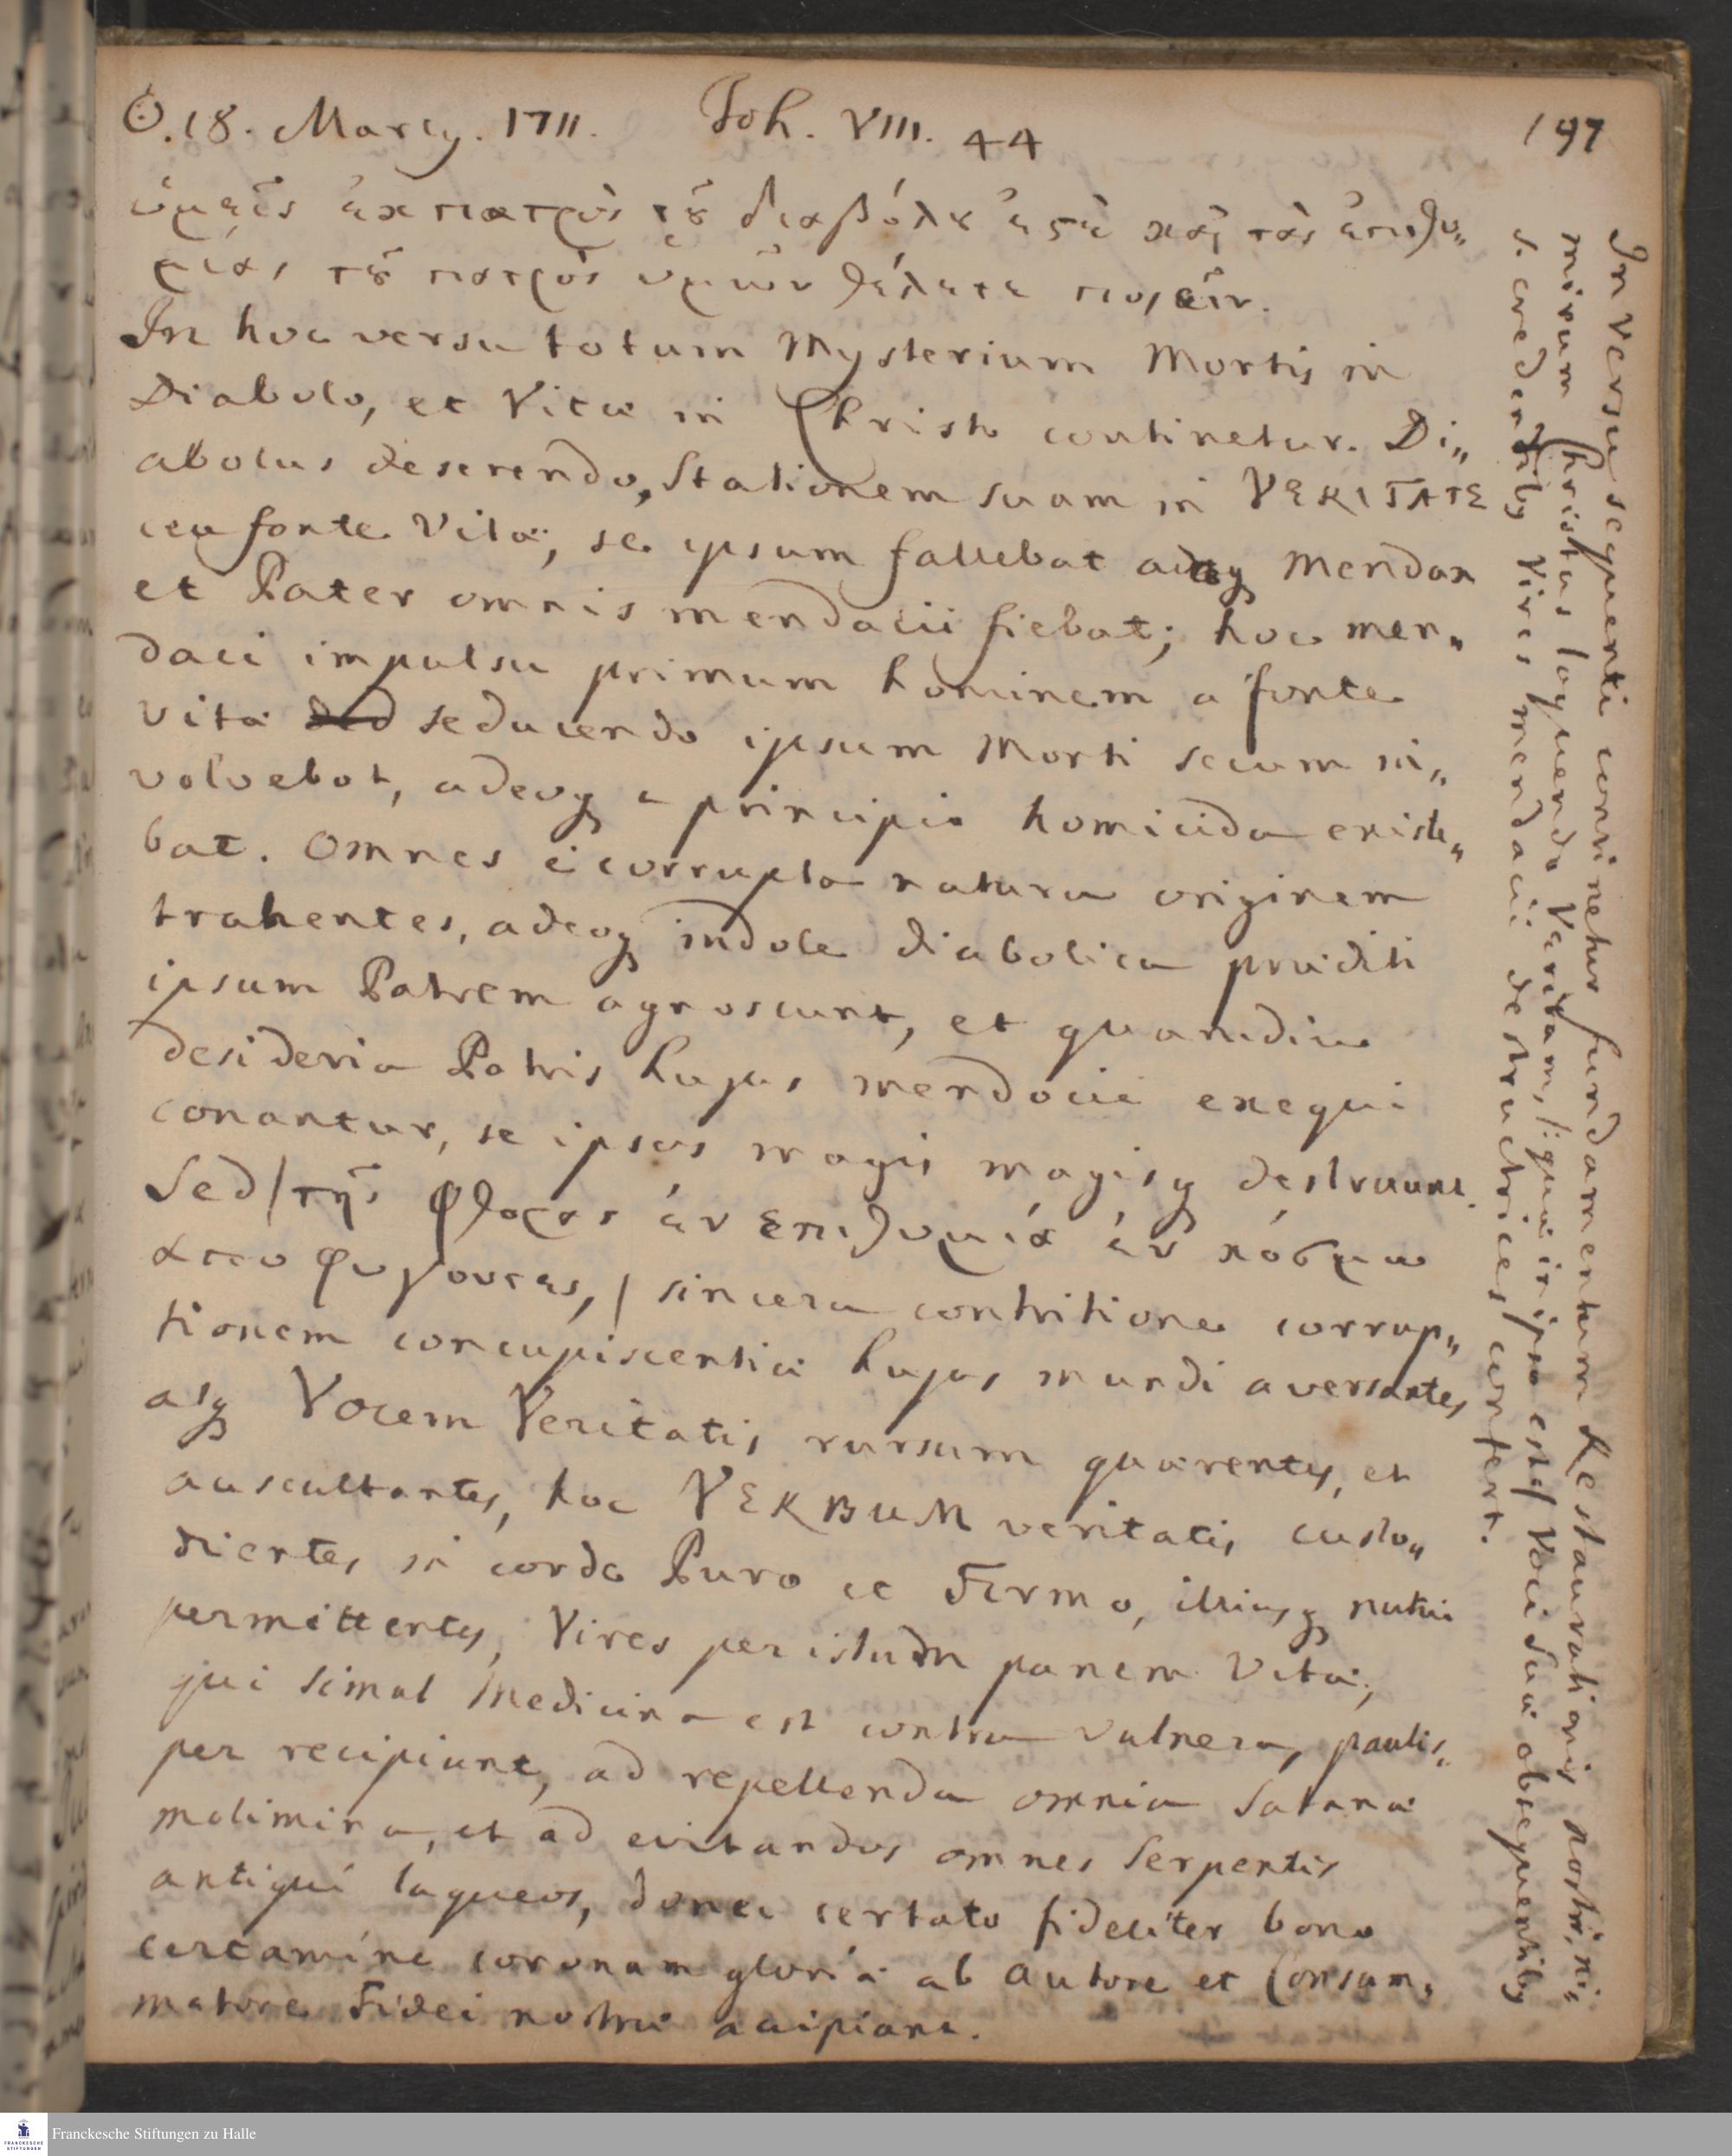 ☉. 18. Martij. 1711. Joh. VIII. 44
197
ὑμεῖς ἐκ πατρὸς τȣ͂ διαβόλȣ ἐϛὲ καὶ τὰς ἐπιθυ„
μίας τȣ͂ πατρὸς ὑμῶν θέλετε ποιεῖν.
In hoc versu totum Mysterium Mortis in
Diabolo, et Vitæ in Christo continetur. Di„
abolus deserendo, Stationem suam in VERITATE
ceu fonte Vitæ, se ipsum fallebat adeoq Mendax
et Pater omnis mendacii fiebat; hoc men„
daci impulsu primum hominem a fonte
vitæ seducendo ipsum Morti secum in„
volvebat, adeoq a principio homicida existe„
bat. Omnes è corrupta natura originem
trahentes, adeoq indole diabolica præditi
ipsum Patrem agnoscunt, et quamdiu
desideria Patris hujus mendacii exequi
conantur, se ipsos magis magisq destruunt.
Sed / τῆς φθορας ἐν επιθυμίᾳ ἐν κόσμω
αποφυγοντες, / sincera contritione corrup„
tionem concupiscentiæ hujus mundi aversantes
asq Vocem Veritatis rursum quærentes, et
auscultantes, hoc VERBUM veritatis custo„
dientes in corde Puro et Firmo, illiusq nutui
permittentes, Vires per istudm panem Vitæ,
qui simul Medicina est contra vulnera, paulis„
per recipiunt, ad repellenda omnia Satanæ
molimina, et ad evitandos omnes Serpentis
antiqui laqueos, donec certato fideliter bono
certamine coronam gloriæ ab Autore et Consum„
matore Fidei nostræ accipiant.
In versu sequenti continetur fundamentum Restaurationis nostri, ni„
mirum Christus loquendo Veritatem, /: quia in ipso est :/ Voci Suæ obsequentibq
s. credentibq Vires mendacii destructrices confert.
Franckesche Stiftungen zu Halle